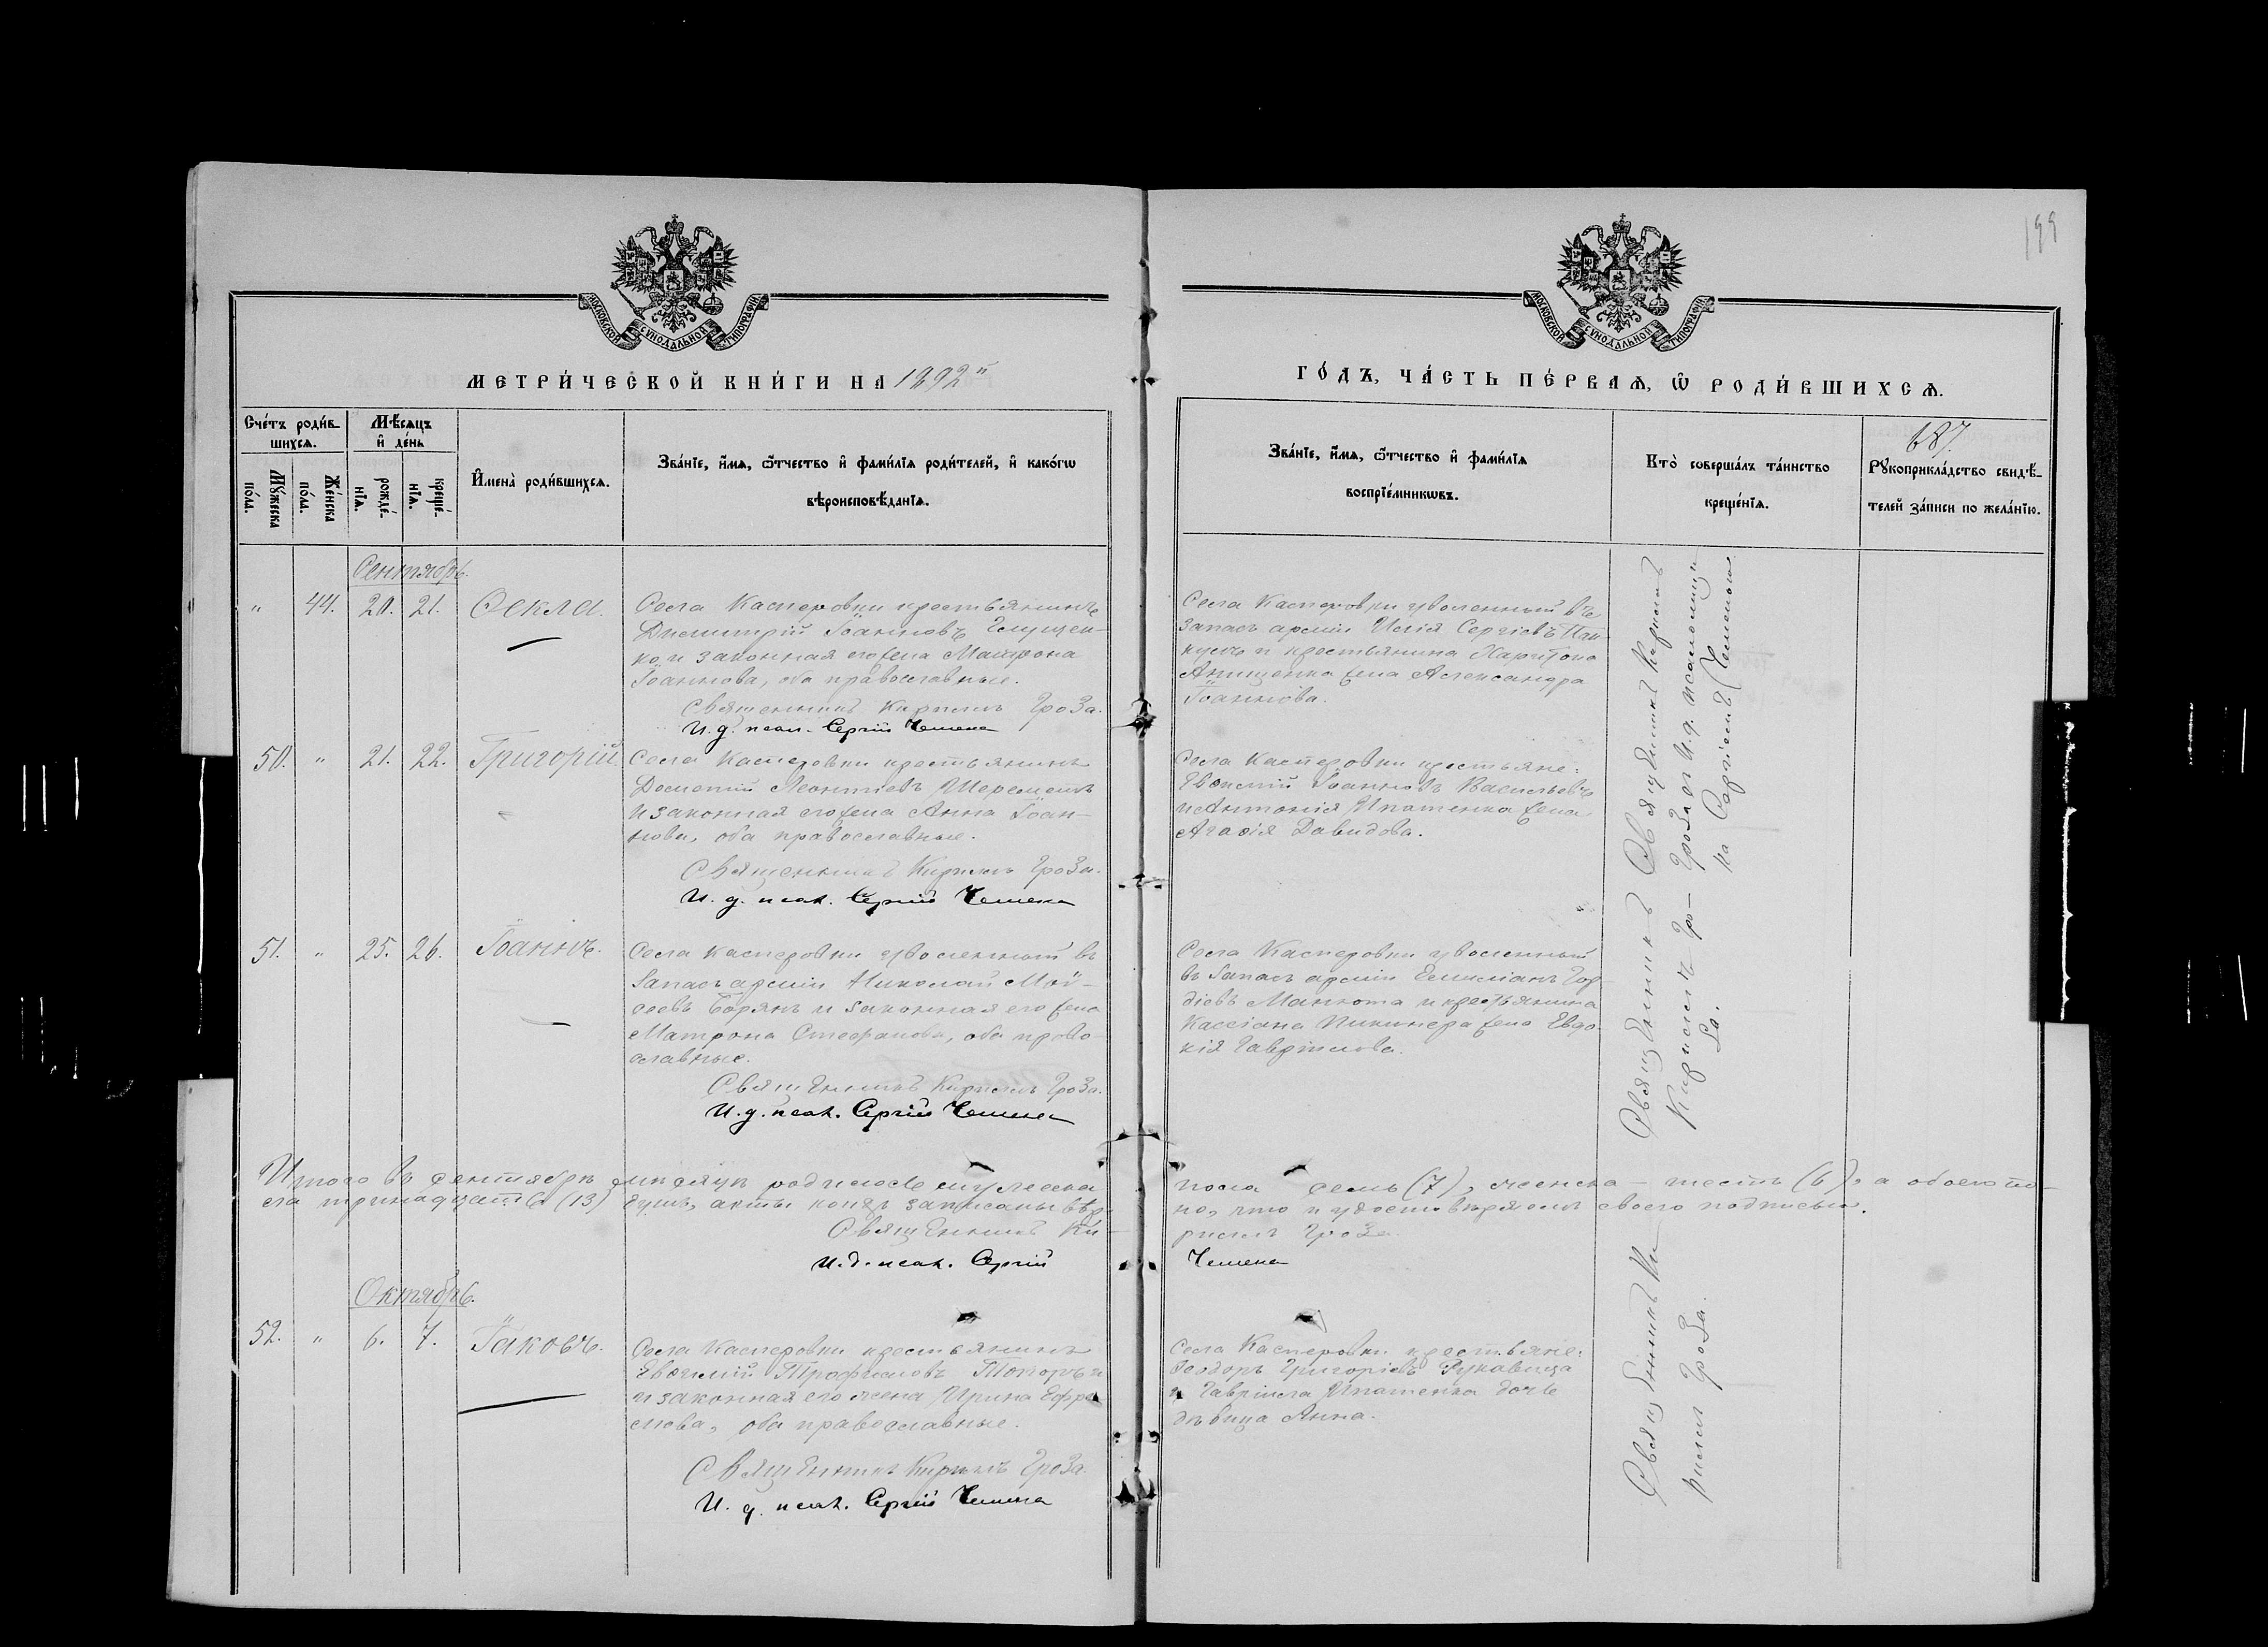 199
МОСКОВСКОЙ СѴНОДАЛЬНОЙ ТИПОГРАФІИ
МОСКОВСКОЙ СѴНОДАЛЬНОЙ ТИПОГРАФІИ
МЕТРИ́ЧЕСКОЙ КНИ́ГИ НА 1892й
ГО́ДЪ, ЧА́СТЬ ПЕ́РВАѦ, Ѿ РОДИ́ВШИХСѦ.
Сче́тъ роди́в-
шихсѧ.
Мѣ́сѧцъ
и҆ де́нь
Мꙋ́жеска
по́ла.
Же́нска
по́ла.
рожде́-
нїѧ.
креще́-
нїѧ.
И҆мена̀ роди́вшихсѧ.
Зва́нїе, и҆́мѧ, ѻ҆́тчество и҆ фами́лїѧ роди́телей, и҆ како́гѡ
вѣроисповѣ́данїѧ.
Зва́нїе, и҆́мѧ, ѻ҆́тчество и҆ фами́лїѧ
воспрїе́мникѡвъ.
Кто̀ соверша́лъ та́инство
креще́нїѧ.
687.
Рꙋкоприкла́дство свидѣ́-
телей за́писи по жела́нїю.
Сентябрь.
" 44. 20. 21. Ѳекла.
Села Касперовки крестьянинъ
Димитрій Іоанновъ Глущен-
ко и законная его жена Матрона
Іоаннова, оба православные.
Священникъ Кириллъ Гроза.
И. д. псал. Сергій Чемена
Села Касперовки уволенный въ
запасъ арміи Илія Сергіевъ
и крестьянина Харитона
Анищенка жена Александра
Іоаннова.
Священникъ Кириллъ
Гроза съ И. д. псаломщи-
ка Сергіемъ Чеменою
50. " 21. 22. Григорій.
Села Касперовки крестьянинъ
Леонтіевъ Шереметъ
и законная его жена Анна Іоан-
нова, оба православные.
Священникъ Кириллъ Гроза.
И. д. псал. Сергій Чемена
Села Касперовки крестьяне:
Евѳимій Іоанновъ Васильевъ
и Антонія Ипатенка жена
Агаѳія Давидова.
51. " 25. 26. Іоаннъ.
Села Касперовки уволенный въ
запасъ арміи Николай Мой-
сеевъ Борянъ и законная его жена
Матрона Стефанова, оба право-
славные.
Священникъ Кириллъ Гроза.
И. д. псал. Сергій Чемена
Села Касперовки уволенный
въ запасъ арміи Емиліанъ Гор-
діевъ Манзюта и крестьянина
Кассіана Пикинера жена Евдо-
кія Гавріилова.
Священникъ
Кириллъ Гро-
за.
Итого въ сентябрѣ мѣсяцѣ родилось мужеска пола семь (7), женска – шесть (6), а обоего по-
ла тринадцать (13) душъ, акты коихъ записаны вѣр-но, что и удостовѣряемъ своею подписью.
Священникъ Ки-риллъ Гроза
И. д. псал. Сергій Чемена
Октябрь.
52. " 6. 7. Іаковъ.
Села Касперовки крестьянинъ
Евѳимій Трофимовъ
и законная его жена Ирина Ефре-
мова, оба православные.
Священникъ Кириллъ Гроза.
И. д. псал. Сергій Чемена
Села Касперовки крестьяне:
Ѳеодоръ Григоріевъ Рукавица
и Гавріила Ипатенка дочь
дѣвица Анна.
Священникъ Ки-
риллъ Гроза.